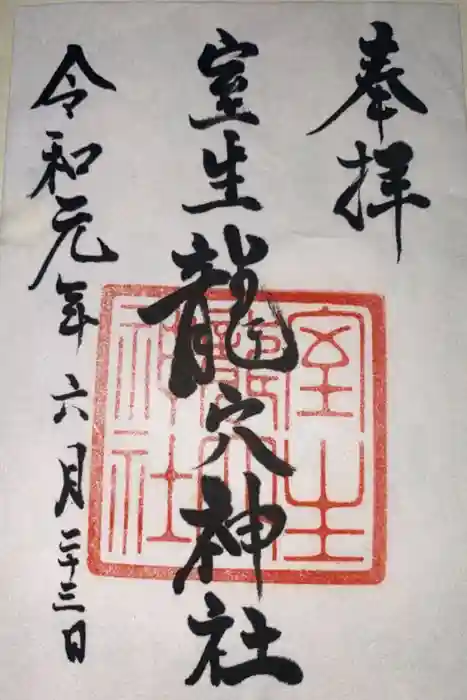 奉拝
室生龍穴神社
令和元年六月二十三日
室生龍穴神社